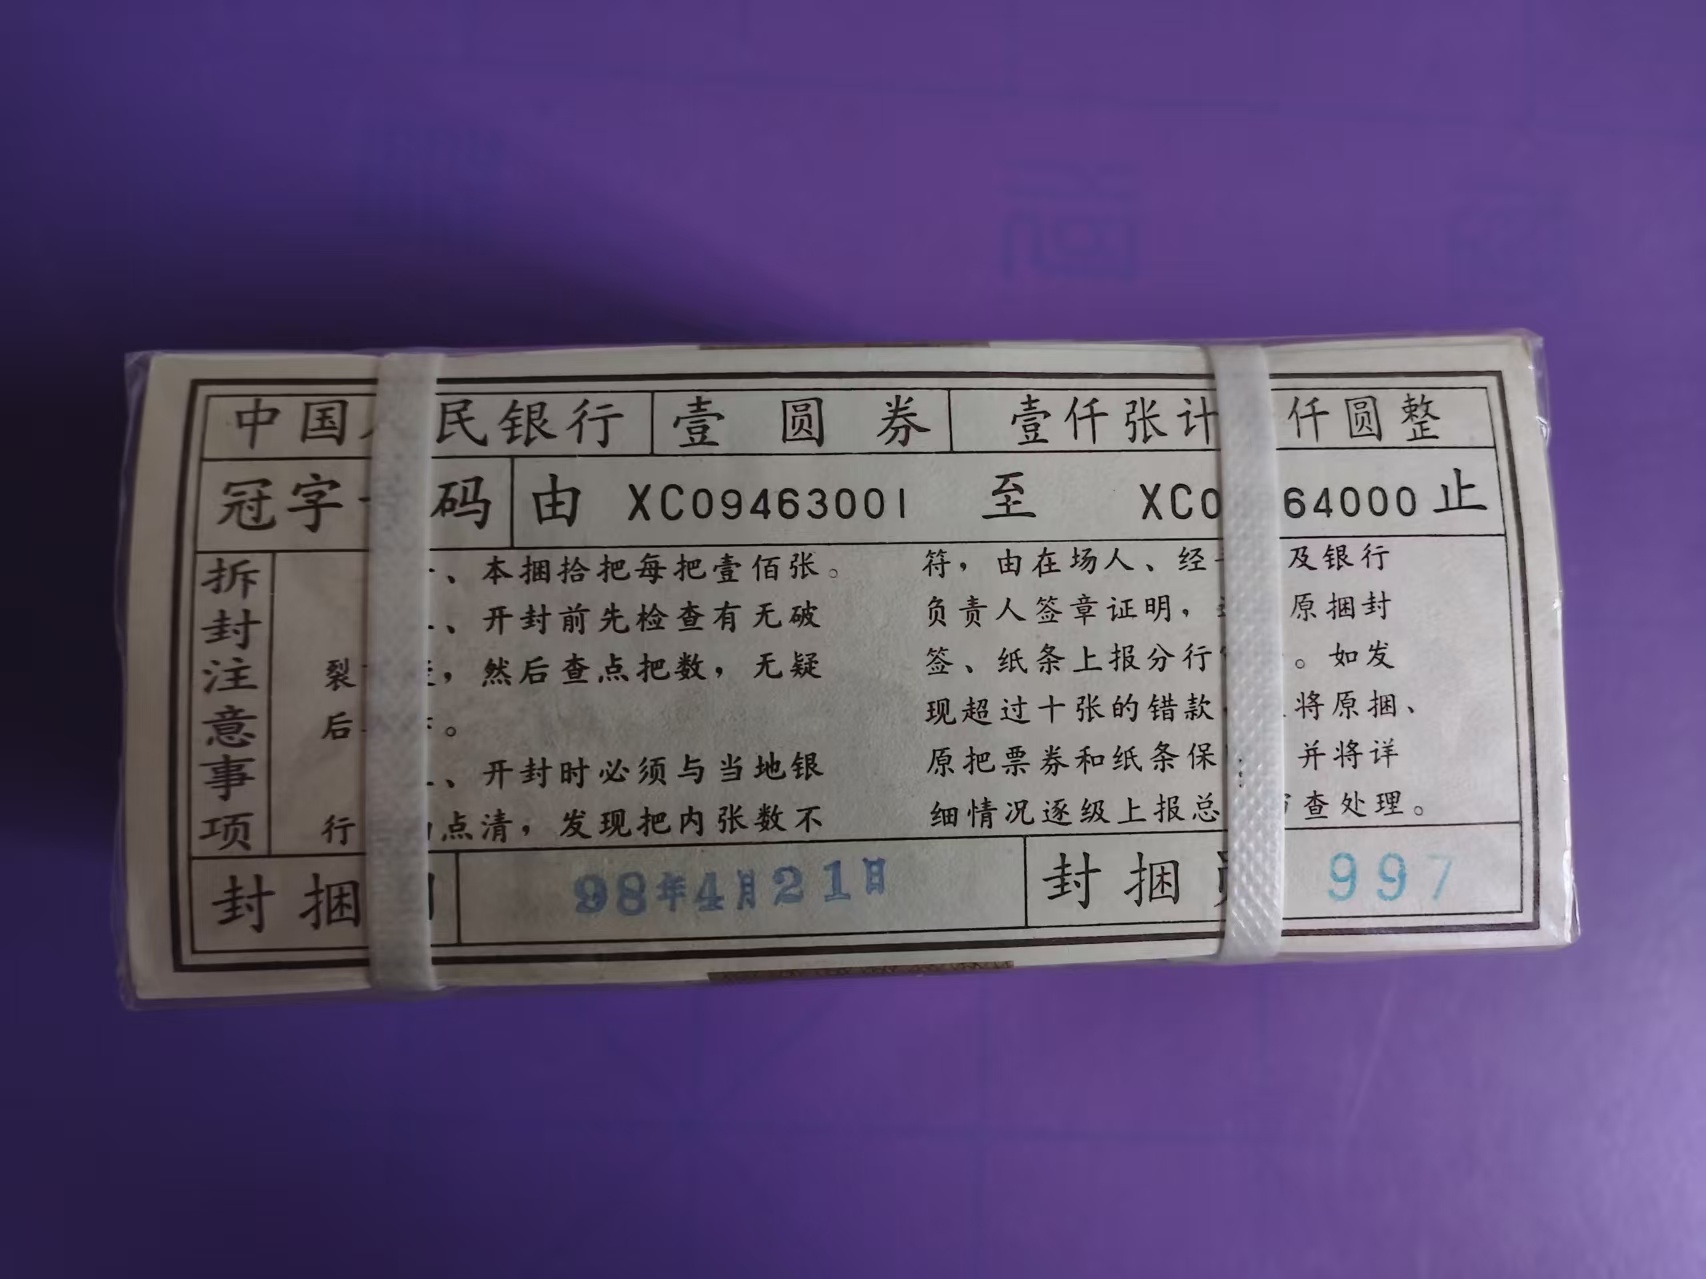 中国 民银行 壹圆券 壹仟张计 仟圆整
冠字 码 由 XC09463001 至 XC0 64000 止
拆封注意事项
、本捆拾把每把壹佰张。
、开封前先检查有无破
裂 ，然后查点把数，无疑
后 。
、开封时必须与当地银
行 点清，发现把内张数不
符，由在场人、经 及银行
负责人签章证明， 原捆封
签、纸条上报分行 。如发
现超过十张的错款 将原捆、
原把票券和纸条保 并将详
细情况逐级上报总 查处理。
封捆 98年4月21日 封捆 997